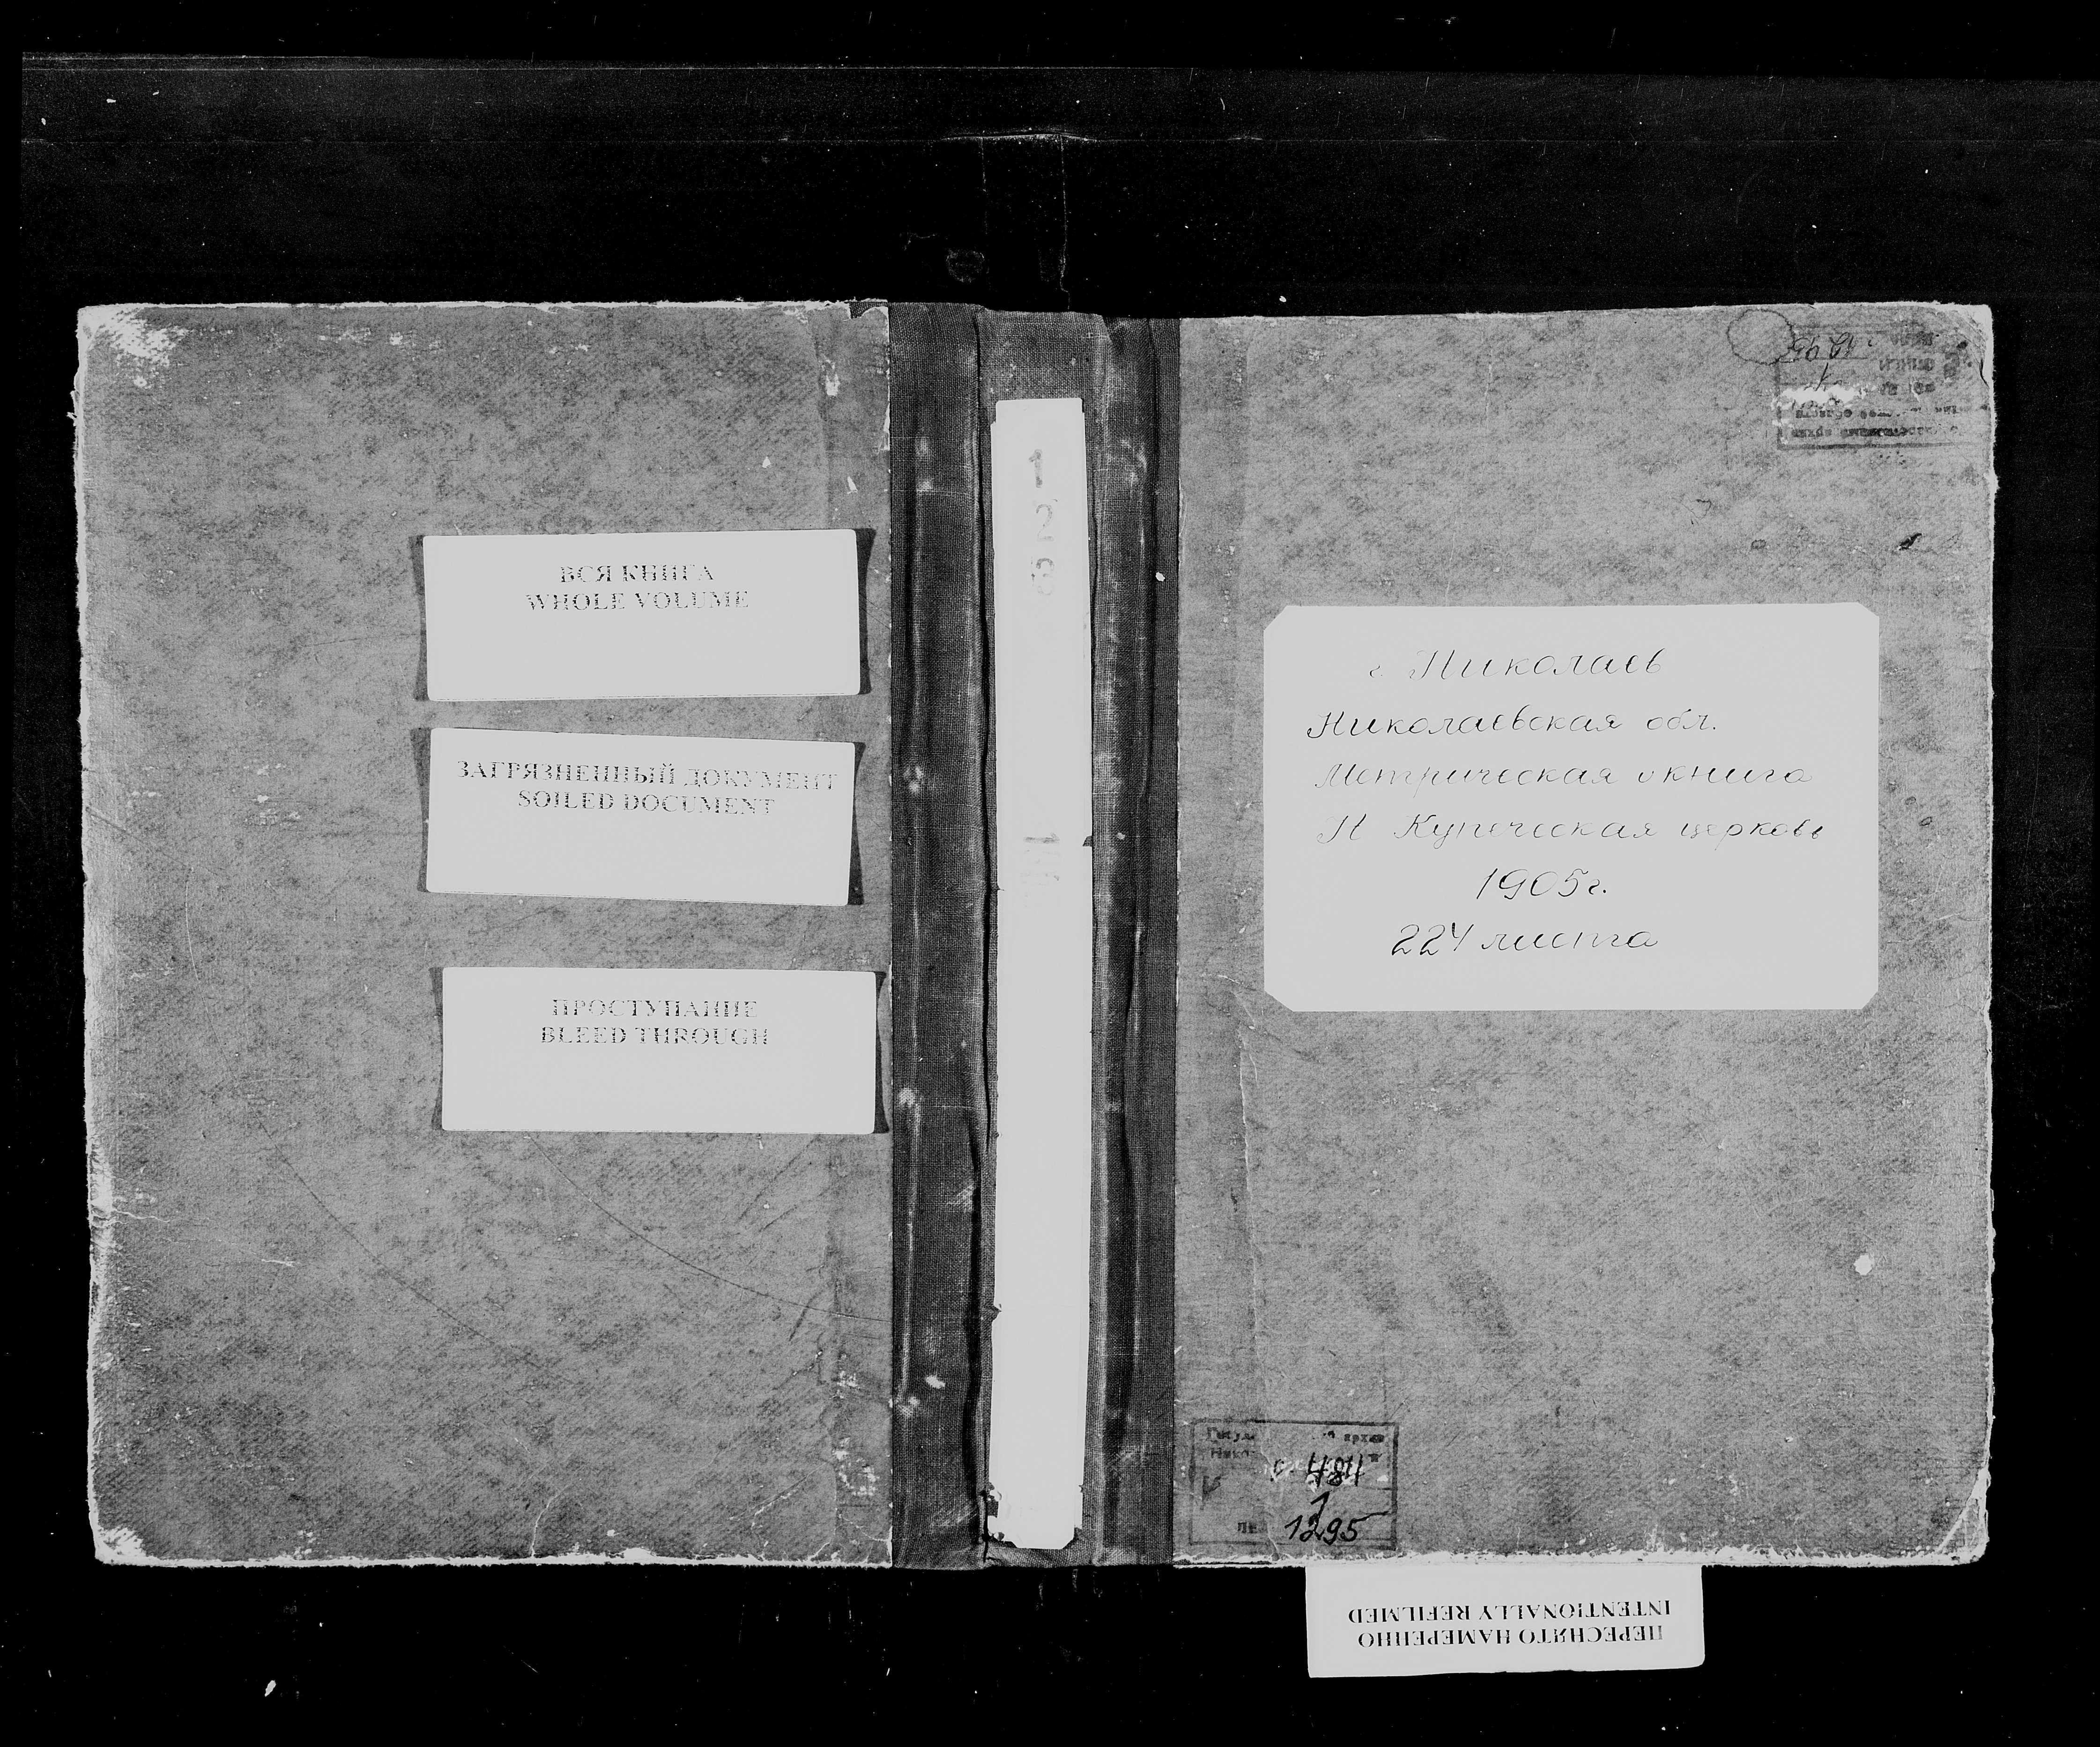 ВСЯ КНИГА
WHOLE VOLUME
ЗАГРЯЗНЕННЫЙ ДОКУМЕНТ
SOILED DOCUMENT
ПРОСТУПАНИЕ
BLEED THROUGH
1
2
г. Николаев
Николаевская обл.
Метрическая книга
Купеческая церковь
1905г.
224 листа
архив
484
1
1295
ПЕРЕСНЯТО НАМЕРЕННО
INTENTIONALLY REFILMED